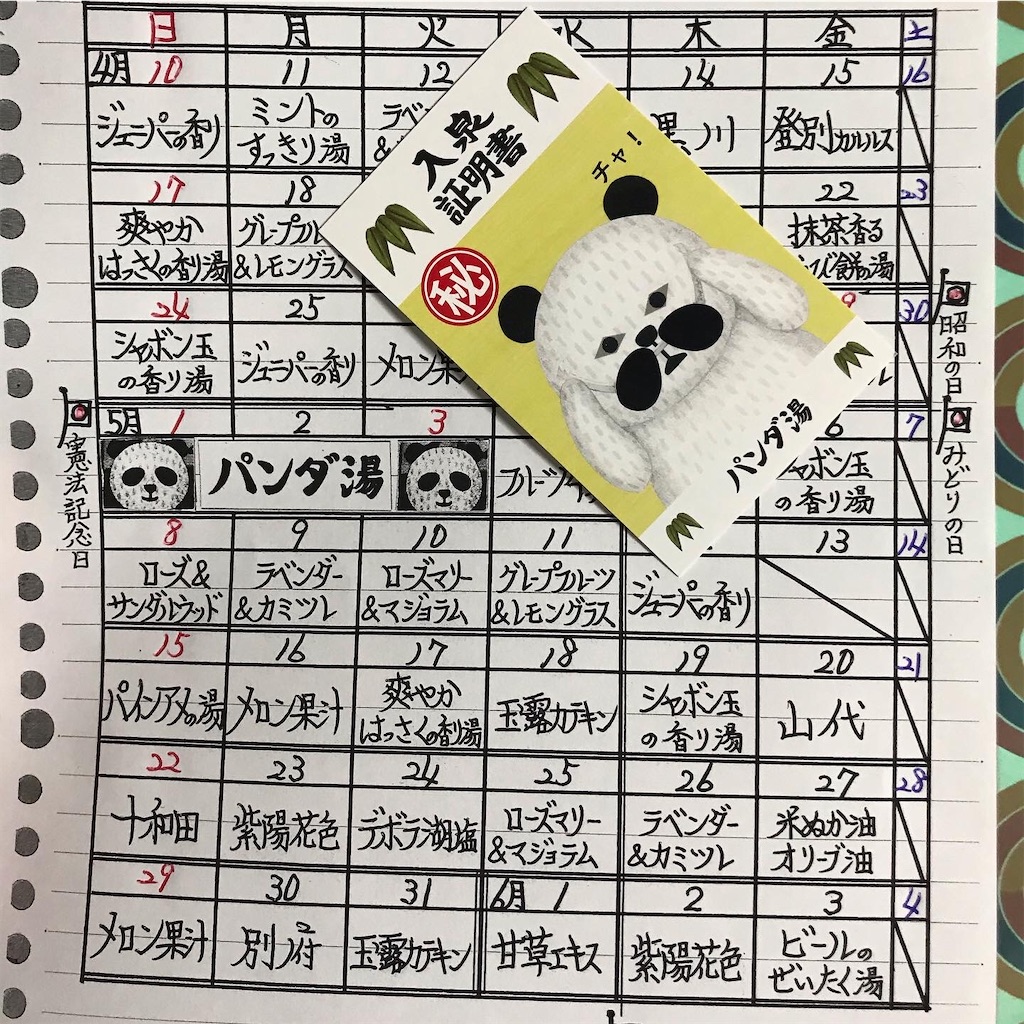 日 月 火 水 木 金 土
4月 10 11 12 14 15 16
ジュニパーの香り ミントの すっきり湯 ラベン & 黒川 登別カルルス
17 18 22 23
爽やか はっさくの香り湯 グレープフル &レモングラス 抹茶香る び餅の湯
24 25 9 30
シャボン玉 の香り湯 ジュニパーの香り メロン果 ル
5月 1 2 3 6 7
パンダ湯 フルーツ ャボン玉 の香り湯
8 9 10 11 13 14
ローズ& サンダルウッド ラベンダー &カミツレ ローズマリー &マジョラム グレープフルーツ &レモングラス ジュニパーの香り
15 16 17 18 19 20 21
パインアメの湯 メロン果汁 爽やか はっさくの香り湯 玉露カテキン シャボン玉 の香り湯 山代
22 23 24 25 26 27 28
十和田 紫陽花色 デボラ湖塩 ローズマリー &マジョラム ラベンダー &カミツレ 米ぬか油 オリーブ油
29 30 31 6月 1 2 3 4
メロン果汁 別府 玉露カテキン 甘草エキス 紫陽花色 ビールの ぜいたく湯
昭和の日
みどりの日
憲法記念日
入泉
証明書
㊙
チャ!
パンダ湯